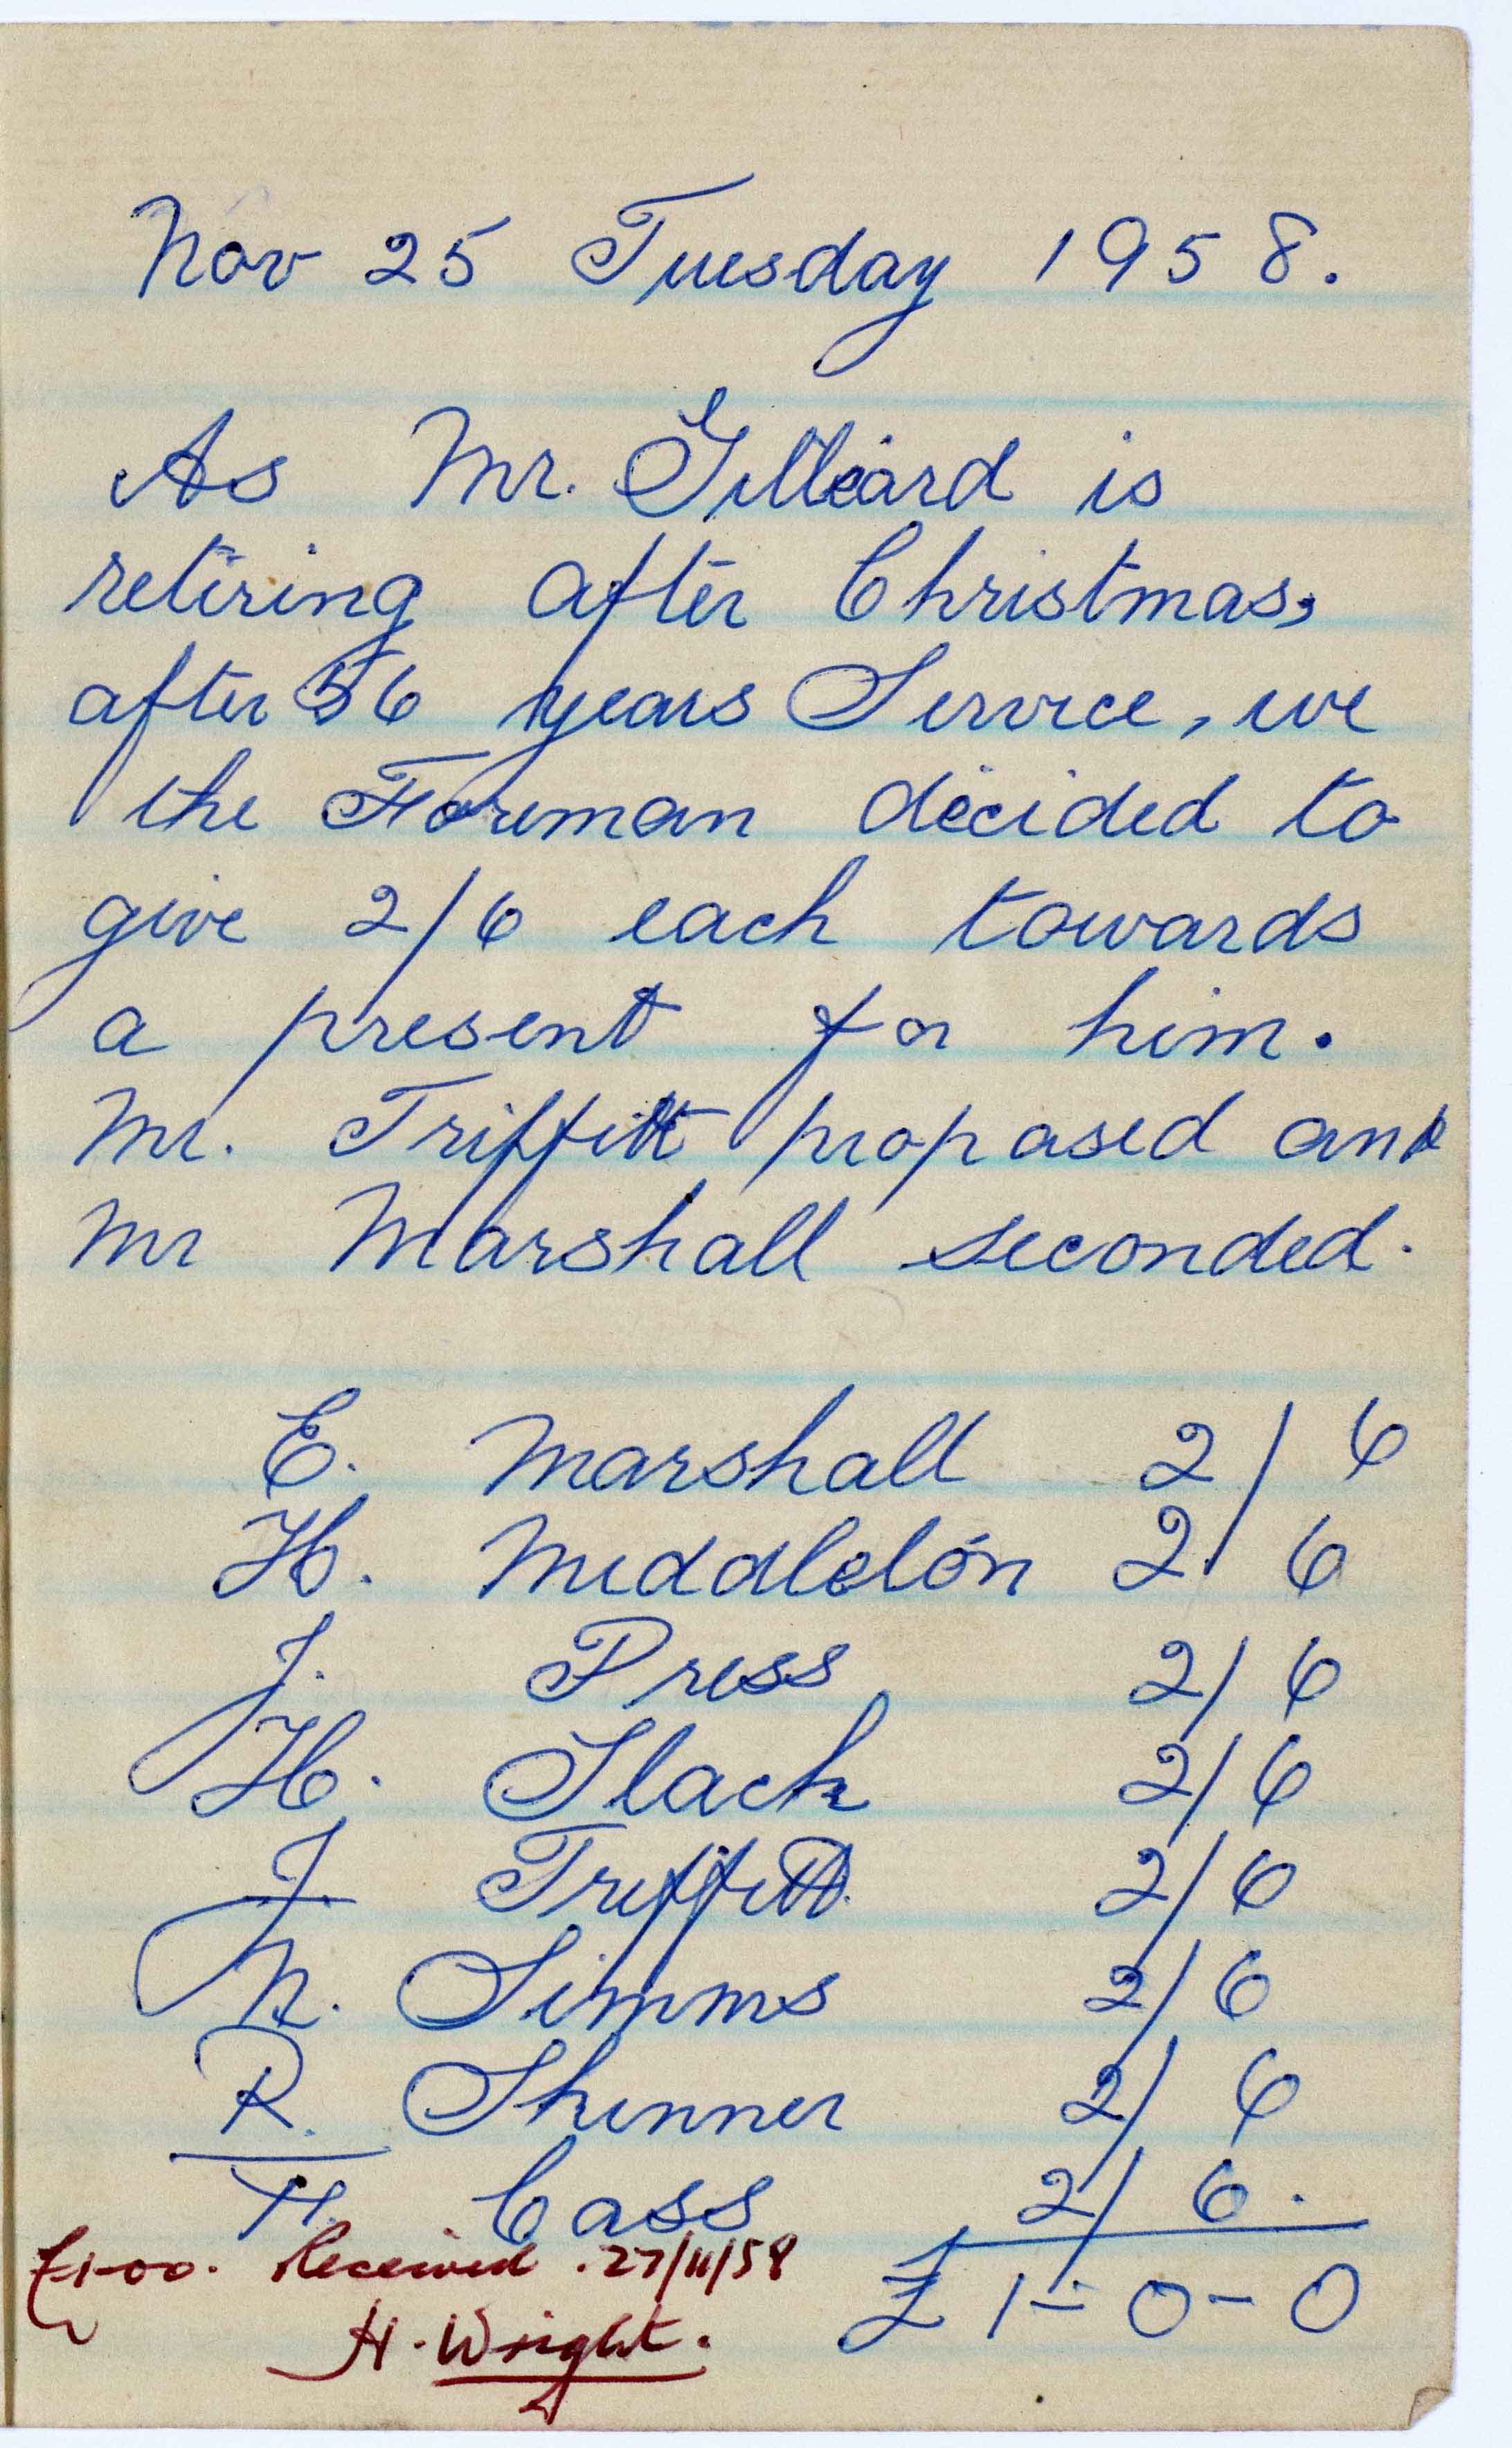 Nov 25 Tuesday 1958.
As Mr. Gilleard is
retiring after Christmas,
after 56 years Service, we
the Foreman decided to
give 2/6 each towards
a present for him.
Mr. Triffitt proposed and
Mr Marshall seconded.
E. Marshall 2/6
H. Middleton 2/6
J. Press 2/6
H. Slack 2/6
J. Triffitt 2/6
N. Simms 2/6
R. Skinner 2/6
H. Cass 2/6.
£1-0-0
£1-0-0. Received. 27/11/58
H. Wright.